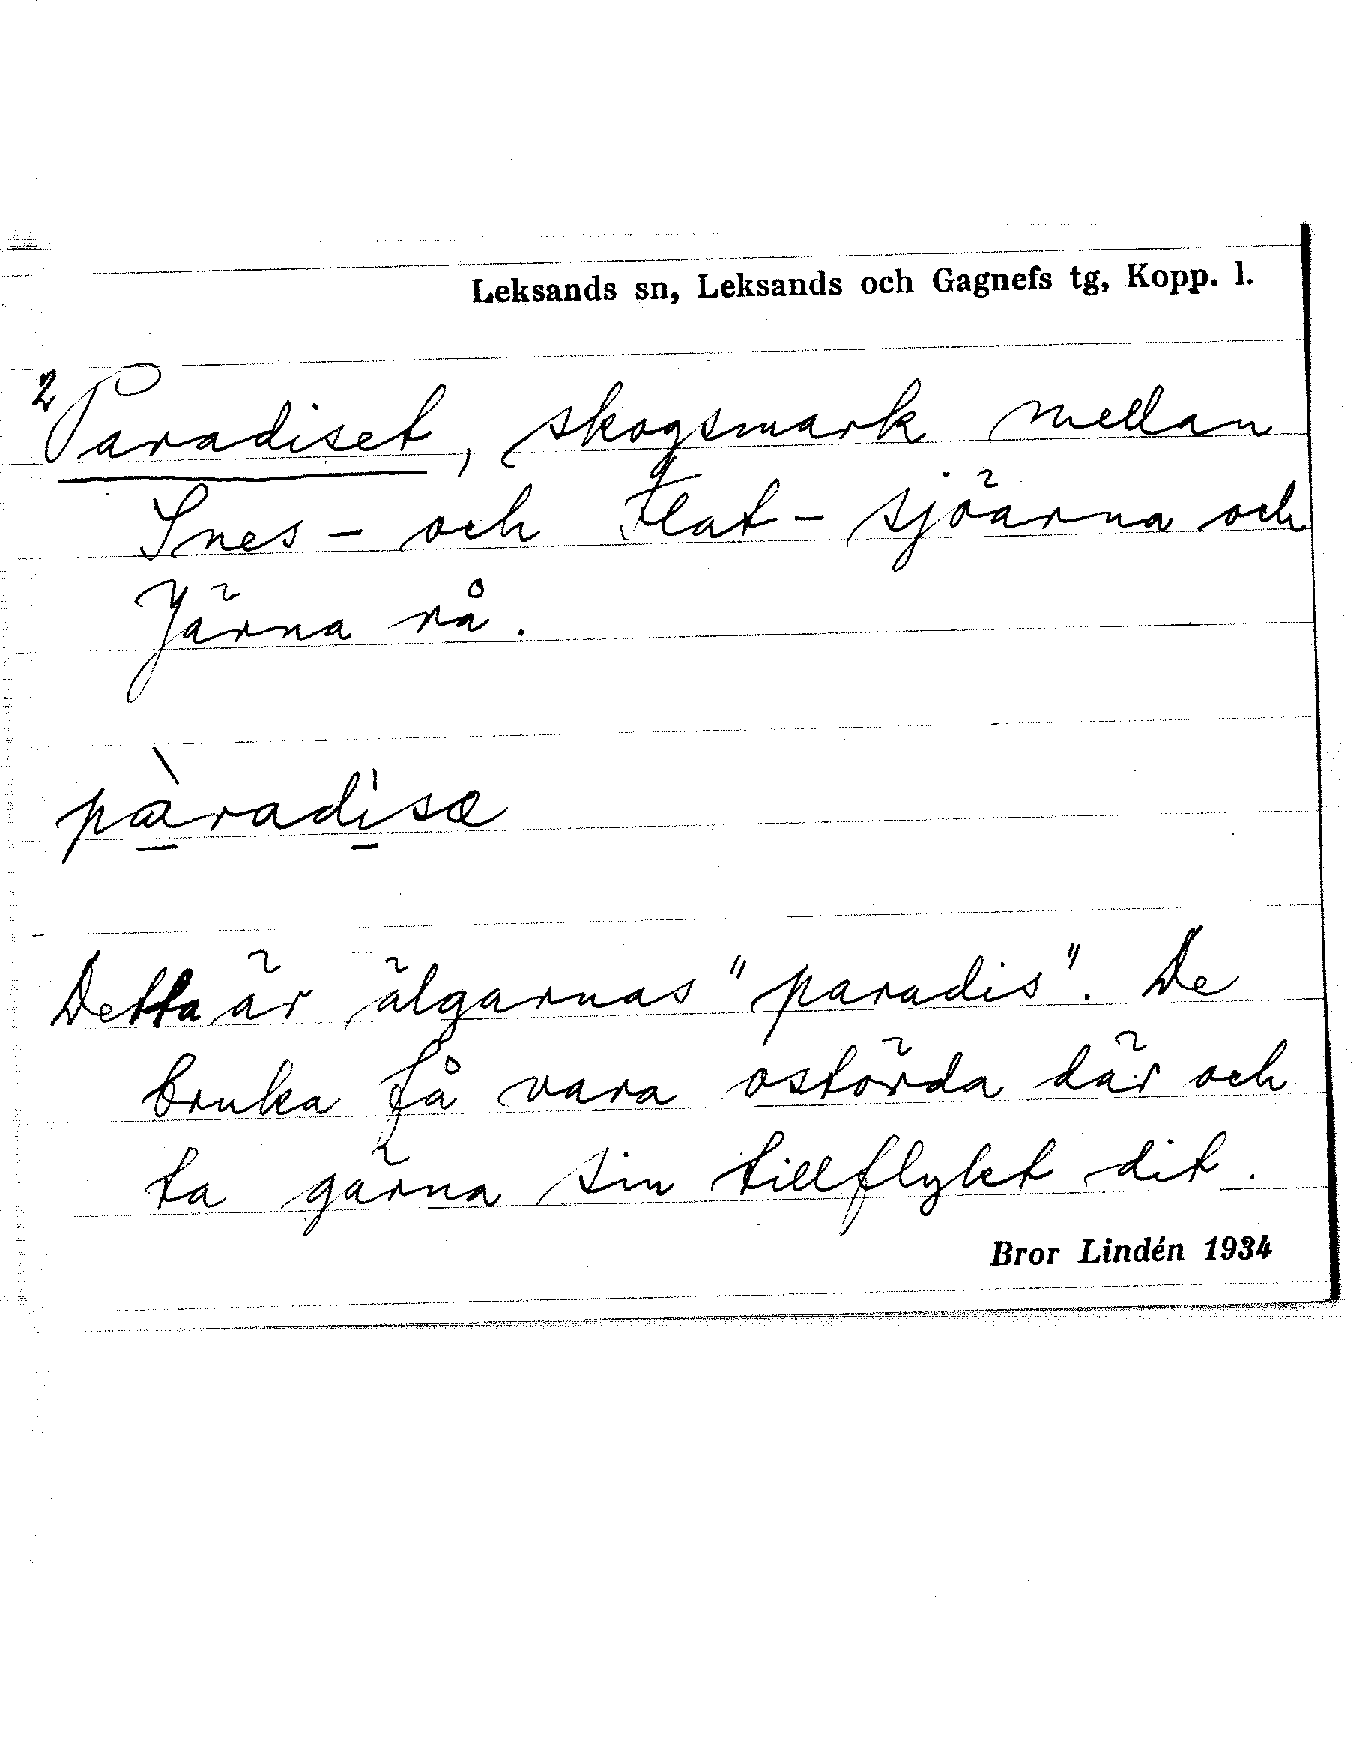 Leksands sn, Leksands och Gagnefs tg, Kopp. l.
2 Paradiset, skogsmark mellan
Snes- och Flat-sjöarna och
Järna rå.
pàradísæ
Detta är älgarnas "paradis". De
bruka få vara ostörda där och
ta gärna sin tillflykt dit.
Bror Lindén 1934